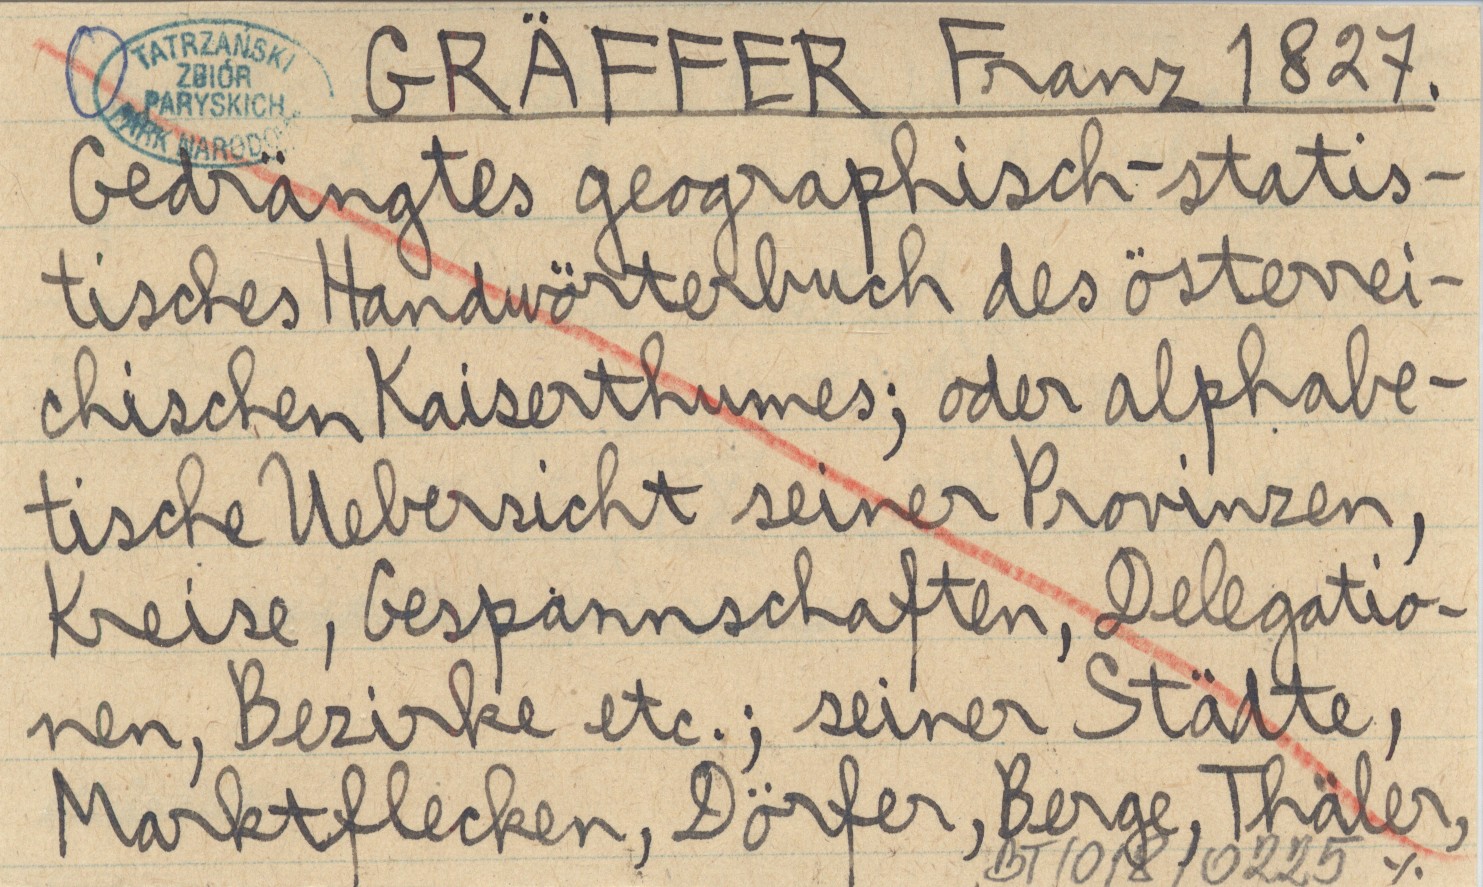 TATRZAŃSKI
ZBIÓR
PARYSKICH
PARK NARODO
GRÄFFER Franz 1827.
Gedrängtes geographisch-statis-
tisches Handwörterbuch des österrei-
chischen Kaiserthumes; oder alphabe-
tische Uebersicht seiner Provinzen,
Kreise, Gespannschaften, Delegatio-
nen, Bezirke etc.; seiner Städte,
Marktflecken, Dörfer, Berge, Thäler,
BT/018/0225 ·/.